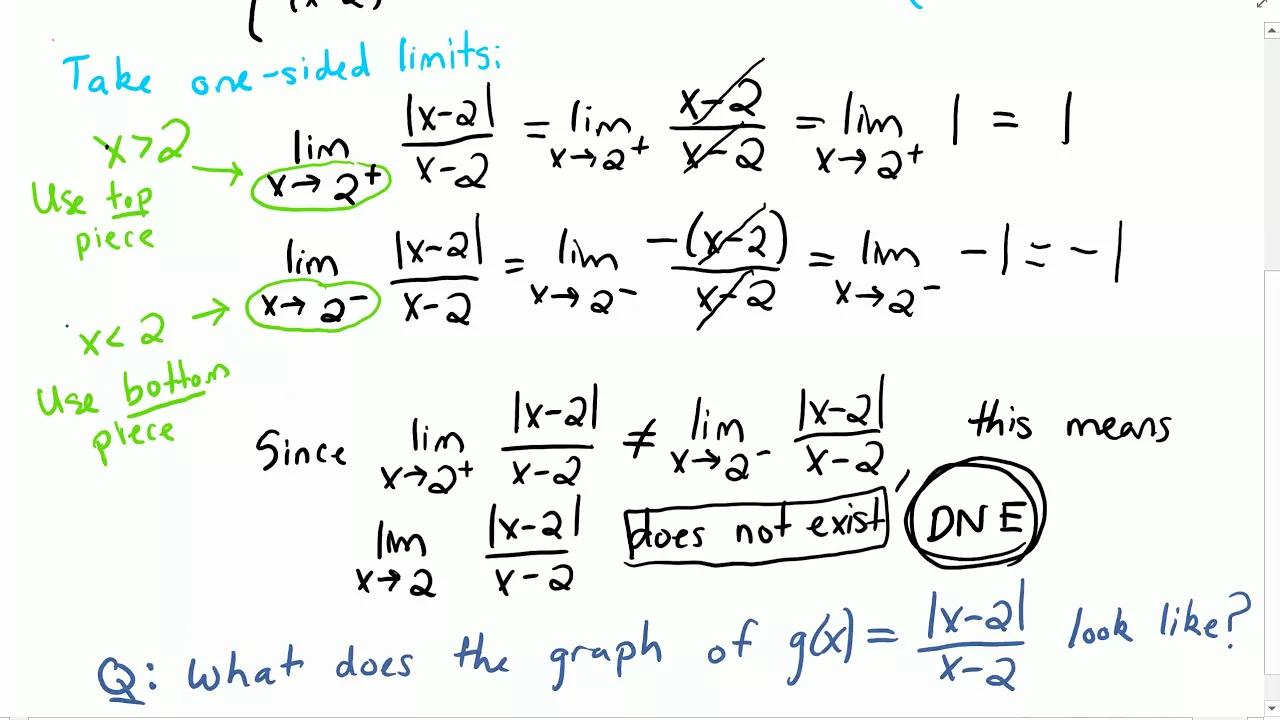 (x-2)
Take one-sided limits:
x>2 → lim x→2⁺ |x-2|/(x-2) = lim x→2⁺ (x-2)/(x-2) = lim x→2⁺ 1 = 1
Use top
piece
x<2 → lim x→2⁻ |x-2|/(x-2) = lim x→2⁻ -(x-2)/(x-2) = lim x→2⁻ -1 = -1
Use bottom
piece
Since lim x→2⁺ |x-2|/(x-2) ≠ lim x→2⁻ |x-2|/(x-2), this means
lim x→2 |x-2|/(x-2) does not exist DNE
Q: What does the graph of g(x) = |x-2|/(x-2) look like?